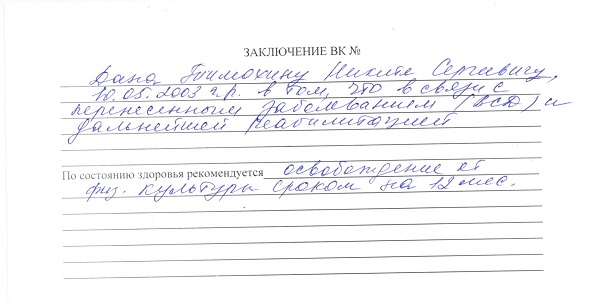 ЗАКЛЮЧЕНИЕ ВК №
Дана Тимохину Никите Сергеевичу,
10.05.2003 г.р. в том, что в связи с
перенесенным заболеванием (ВСД) и
дальнейшей реабилитацией
По состоянию здоровья рекомендуется освобождение от
физ. культуры сроком на 12 мес.